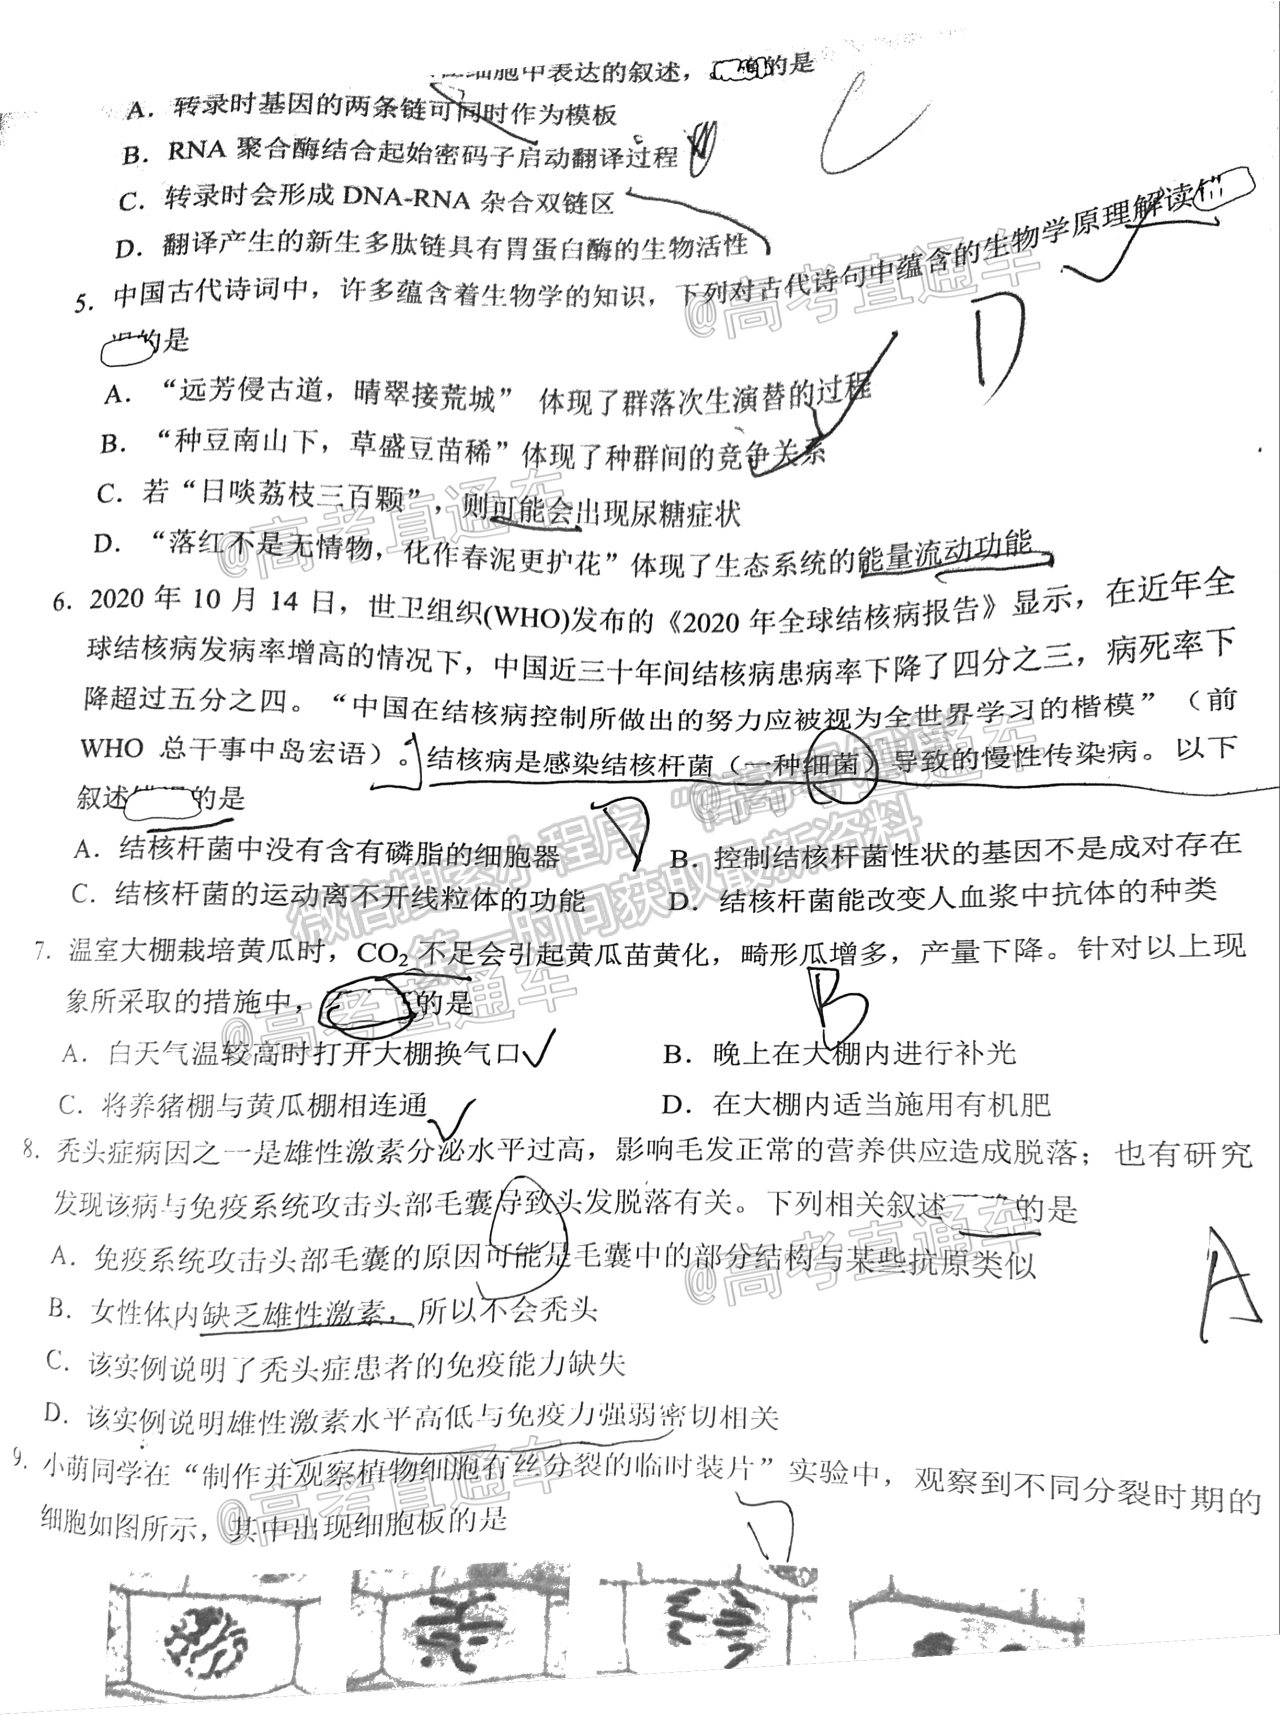 细胞中表达的叙述，的是
A．转录时基因的两条链可同时作为模板
B．RNA 聚合酶结合起始密码子启动翻译过程
C．转录时会形成 DNA-RNA 杂合双链区
D．翻译产生的新生多肽链具有胃蛋白酶的生物活性
C
5．中国古代诗词中，许多蕴含着生物学的知识，下列对古代诗句中蕴含的生物学原理解读
的是
D
A．“远芳侵古道，晴翠接荒城” 体现了群落次生演替的过程
B．“种豆南山下，草盛豆苗稀”体现了种群间的竞争关系
C．若“日啖荔枝三百颗”，则可能会出现尿糖症状
D．“落红不是无情物，化作春泥更护花”体现了生态系统的能量流动功能
6．2020 年 10 月 14 日，世卫组织(WHO)发布的《2020 年全球结核病报告》显示，在近年全
球结核病发病率增高的情况下，中国近三十年间结核病患病率下降了四分之三，病死率下
降超过五分之四。“中国在结核病控制所做出的努力应被视为全世界学习的楷模”（前
WHO 总干事中岛宏语）。结核病是感染结核杆菌（一种细菌）导致的慢性传染病。以下
叙述的是
D
A．结核杆菌中没有含有磷脂的细胞器 B．控制结核杆菌性状的基因不是成对存在
C．结核杆菌的运动离不开线粒体的功能 D．结核杆菌能改变人血浆中抗体的种类
7．温室大棚栽培黄瓜时，CO₂ 不足会引起黄瓜苗黄化，畸形瓜增多，产量下降。针对以上现
象所采取的措施中，的是
B
A．白天气温较高时打开大棚换气口 B．晚上在大棚内进行补光
C．将养猪棚与黄瓜棚相连通 D．在大棚内适当施用有机肥
8．秃头症病因之一是雄性激素分泌水平过高，影响毛发正常的营养供应造成脱落；也有研究
发现该病与免疫系统攻击头部毛囊导致头发脱落有关。下列相关叙述的是
A．免疫系统攻击头部毛囊的原因可能是毛囊中的部分结构与某些抗原类似
B．女性体内缺乏雄性激素，所以不会秃头
A
C．该实例说明了秃头症患者的免疫能力缺失
D．该实例说明雄性激素水平高低与免疫力强弱密切相关
9．小萌同学在“制作并观察植物细胞有丝分裂的临时装片”实验中，观察到不同分裂时期的
细胞如图所示，其中出现细胞板的是
D
@高考直通车
@高考直通车
@高考直通车
微信搜索小程序“@高考直通车
第一时间获取最新资料
@高考直通车
@高考直通车
@高考直通车